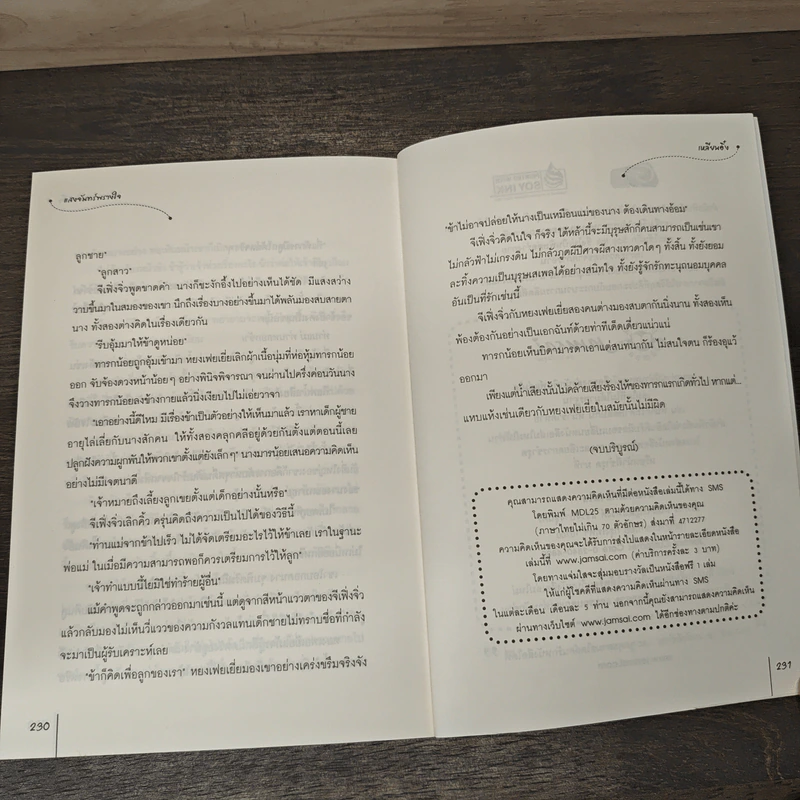 กลยุทธ์พรายใจ
ลูกชาย"
"ลูกสาว"
จีเฟิ่งจิ่วพูดขาดคำ นางก็ชะงักอึ้งไปอย่างเห็นได้ชัด มีแสงสว่าง
วาบขึ้นมาในสมองของเขา นึกถึงเรื่องบางอย่างขึ้นมาได้พลันมองสบสายตา
นาง ทั้งสองต่างคิดในเรื่องเดียวกัน
"รีบอุ้มมาให้ข้าดูหน่อย"
ทารกน้อยถูกอุ้มเข้ามา หยงเฟยเยี่ยเลิกผ้าเนื้อนุ่มที่ห่อหุ้มทารกน้อย
ออก จับจ้องดวงหน้าน้อยๆ อย่างพินิจพิจารณา จนผ่านไปครึ่งค่อนวันนาง
จึงวางทารกน้อยลงข้างกายแล้วนิ่งเงียบไปไม่เอ่ยวาจา
"เอาอย่างนี้ดีไหม มีเรื่องข้าเป็นตัวอย่างให้เห็นมาแล้ว เราหาเด็กผู้ชาย
อายุไล่เลี่ยกับนางสักคน ให้ทั้งสองคลุกคลีอยู่ด้วยกันตั้งแต่ตอนนี้เลย
ปลูกฝังความผูกพันให้พวกเขาตั้งแต่ยังเล็กๆ" นางมารน้อยเสนอความคิดเห็น
อย่างไม่มีเจตนาดี
"เจ้าหมายถึงเลี้ยงลูกเขยตั้งแต่เด็กอย่างนั้นหรือ"
จีเฟิ่งจิ่วเลิกคิ้ว ครุ่นคิดถึงความเป็นไปได้ของวิธีนี้
"ท่านแม่จากข้าไปเร็ว ไม่ได้จัดเตรียมอะไรไว้ให้ข้าเลย เราในฐานะ
พ่อแม่ ในเมื่อมีความสามารถพอก็ควรเตรียมการไว้ให้ลูก"
"เจ้าทำแบบนี้ใยมิใช่ทำร้ายผู้อื่น"
แม้คำพูดจะถูกกล่าวออกมาเช่นนี้ แต่ดูจากสีหน้าแววตาของจีเฟิ่งจิ่ว
แล้วกลับมองไม่เห็นวี่แววของความกังวลแทนเด็กชายไม่ทราบชื่อที่กำลัง
จะมาเป็นผู้รับเคราะห์เลย
"ข้าก็คิดเพื่อลูกของเรา" หยงเฟยเยี่ยมองเขาอย่างเคร่งขรึมจริงจัง
290
เหลียนอิ๋ง
"ข้าไม่อาจปล่อยให้นางเป็นเหมือนแม่ของนาง ต้องเดินทางอ้อม"
จีเฟิ่งจิ่วคิดในใจ ก็จริง ใต้หล้านี้จะมีบุรุษสักกี่คนสามารถเป็นเช่นเขา
ไม่กลัวฟ้าไม่เกรงดิน ไม่กลัวภูตผีปีศาจผีสางเทวดาใดๆ ทั้งสิ้น ทั้งยังยอม
ละทิ้งความเป็นบุรุษเสเพลได้อย่างสนิทใจ ทั้งยังรู้จักรักทะนุถนอมบุคคล
อันเป็นที่รักเช่นนี้
จีเฟิ่งจิ่วกับหยงเฟยเยี่ยสองคนต่างมองสบตากันนิ่งนาน ทั้งสองเห็น
พ้องต้องกันอย่างเป็นเอกฉันท์ด้วยท่าทีเด็ดเดี่ยวแน่วแน่
ทารกน้อยเห็นบิดามารดาเอาแต่สนทนากัน ไม่สนใจตน ก็ร้องอุแว้
ออกมา
เพียงแต่น้ำเสียงนั้นไม่คล้ายเสียงร้องไห้ของทารกแรกเกิดทั่วไป หากแต่...
แหบแห้งเช่นเดียวกับหยงเฟยเยี่ยในสมัยนั้นไม่มีผิด
(จบบริบูรณ์)
คุณสามารถแสดงความคิดเห็นที่มีต่อหนังสือเล่มนี้ได้ทาง SMS
โดยพิมพ์ MDL25 ตามด้วยความคิดเห็นของคุณ
(ภาษาไทยไม่เกิน 70 ตัวอักษร) ส่งมาที่ 4712277
ความคิดเห็นของคุณจะได้รับการส่งไปแสดงในหน้ารายละเอียดหนังสือ
เล่มนี้ที่ www.jamsai.com (ค่าบริการครั้งละ 3 บาท)
โดยทางแจ่มใสจะสุ่มมอบรางวัลเป็นหนังสือฟรี 1 เล่ม
ให้แก่ผู้โชคดีที่แสดงความคิดเห็นผ่านทาง SMS
ในแต่ละเดือน เดือนละ 5 ท่าน นอกจากนี้คุณยังสามารถแสดงความคิดเห็น
ผ่านทางเว็บไซต์ www.jamsai.com ได้อีกช่องทางตามปกติค่ะ
291